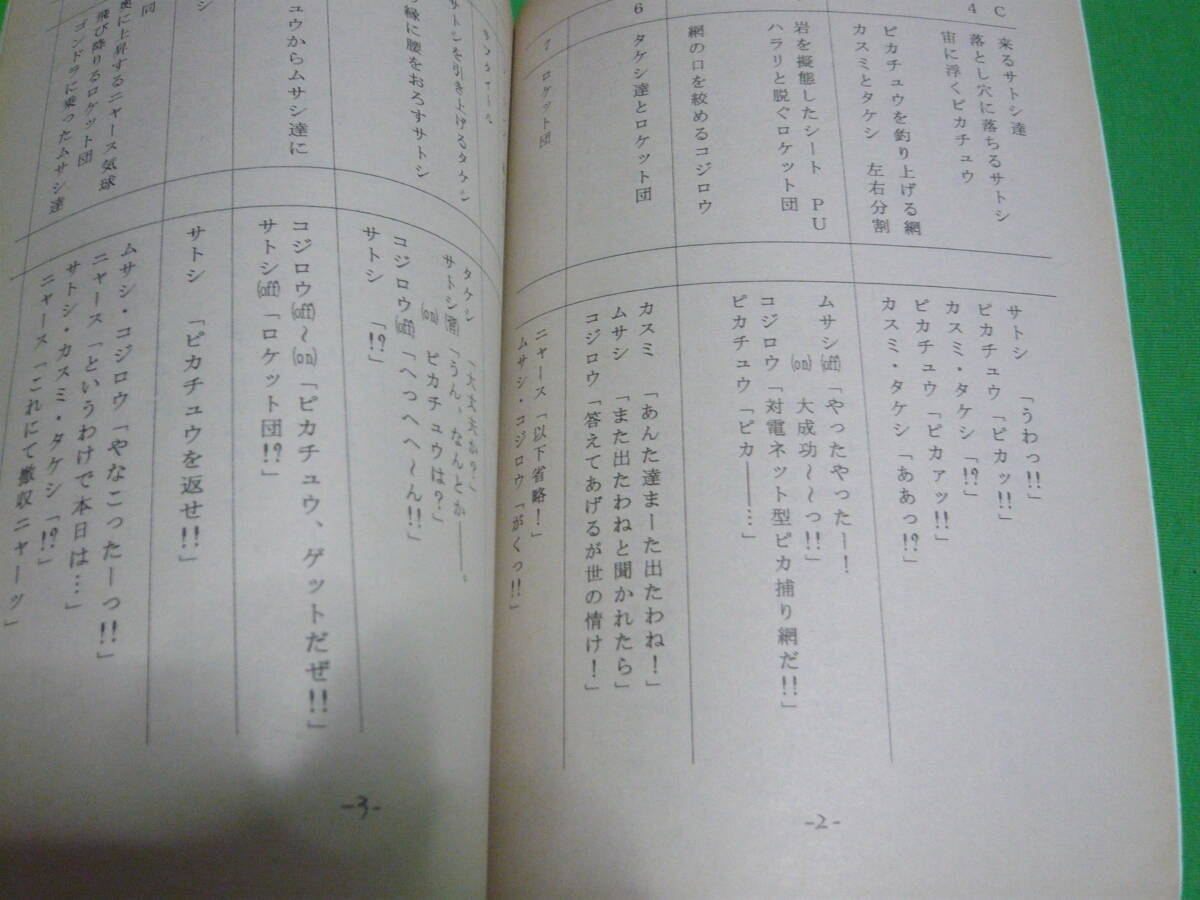 C
4
来るサトシ達
落とし穴に落ちるサトシ
宙に浮くピカチュウ
ピカチュウを釣り上げる網
カスミとタケシ 左右分割
岩を擬態したシート PU
ハラリと脱ぐロケット団
網の口を絞めるコジロウ
6
タケシ達とロケット団
7
ロケット団
サトシ 「うわっ!!」
ピカチュウ「ピカッ!!」
カスミ・タケシ「!?」
ピカチュウ「ピカァッ!!」
カスミ・タケシ「ああっ!?」
ムサシ(off)「やったやったー!
(on) 大成功〜〜っ!!」
コジロウ「対電ネット型ピカ捕り網だ!!」
ピカチュウ「ピカ――…」
カスミ 「あんた達まーた出たわね!」
ムサシ 「また出たわねと聞かれたら」
コジロウ「答えてあげるが世の情け!」
ニャース「以下省略!」
ムサシ・コジロウ「がくっ!!」
-2-
サトシを引き上げるタケシ
縁に腰をおろすサトシ
ュウからムサシ達に
シ
同
奥に上昇するニャース気球
飛び降りるロケット団
ゴンドラに乗ったムサシ達
タケシ 「大丈夫か?」
サトシ 「うん、なんとか――。
(on) ピカチュウは?」
コジロウ(off)「へっへへ〜ん!!」
サトシ 「!?」
コジロウ(off)〜(on)「ピカチュウ、ゲットだぜ!!」
サトシ(off)「ロケット団!?」
サトシ 「ピカチュウを返せ!!」
ムサシ・コジロウ「やなこったーっ!!」
ニャース「というわけで本日は…」
サトシ・カスミ・タケシ「!?」
ニャース「これにて撤収ニャーッ」
-3-